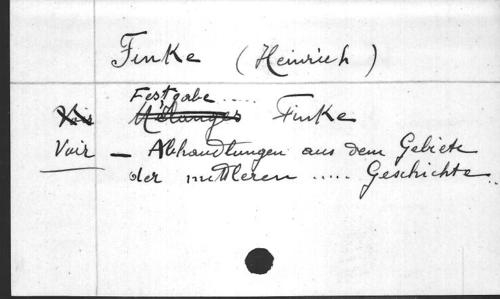 Finke (Heinrich)
Festgabe .....
Voir Mélanges Finke
Voir — Abhandlungen aus dem Gebiete
der mittleren ..... Geschichte.